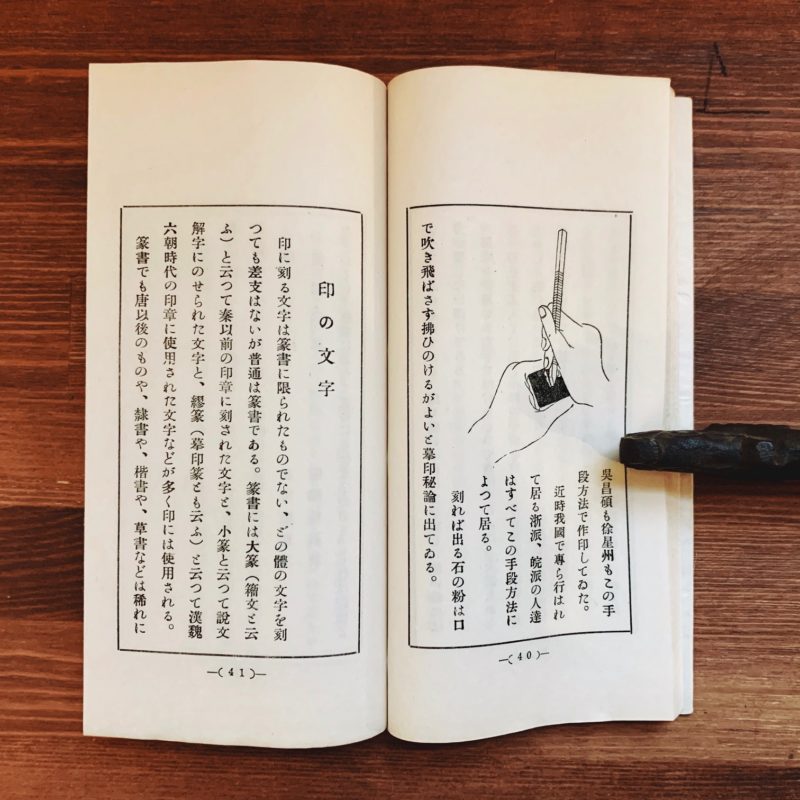 吳昌碩も徐星州もこの手
段方法で作印してゐた。
近時我國で專ら行はれ
て居る浙派、皖派の人達
はすべてこの手段方法に
よつて居る。
刻れば出る石の粉は口
で吹き飛ばさず拂ひのけるがよいと摹印秘論に出てゐる。
—( 40 )—
印の文字
印に刻る文字は篆書に限られたものでない、どの體の文字を刻
つても差支はないが普通は篆書である。篆書には大篆(籀文と云
ふ)と云つて秦以前の印章に刻された文字と、小篆と云つて說文
解字にのせられた文字と、繆篆(摹印篆とも云ふ)と云つて漢魏
六朝時代の印章に使用された文字などが多く印には使用される。
篆書でも唐以後のものや、隸書や、楷書や、草書などは稀れに
—( 41 )—